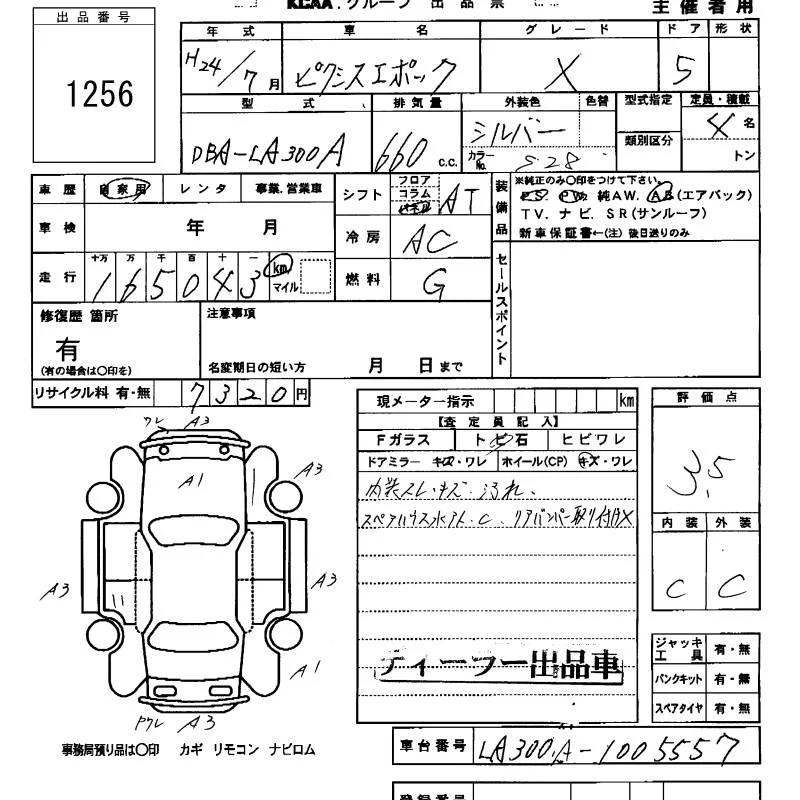 KCAA.グループ 出品票
主催者用
出品番号
1256
年式 車名 グレード ドア 形状
H24/7月 ピクシスエポック X 5
型式 排気量 外装色 色替 型式指定 定員・積載
DBA-LA300A 660 c.c. シルバー 4名
カラーNo. S28 類別区分 トン
車歴 自家用 レンタ 事業.営業車
シフト フロア コラム パネル AT
装備品 ※純正のみ○印をつけて下さい。
PS PW 純AW. AB(エアバック)
TV. ナビ. SR(サンルーフ)
新車保証書←(注) 後日送りのみ
車検 年 月
冷房 AC
走行 十万 万 千 百 十 一
1 6 5 0 4 3 km マイル
燃料 G
セールスポイント
修復歴 箇所
有
(有の場合は○印を)
注意事項
名変期日の短い方 月 日まで
リサイクル料 有・無 7320円
現メーター指示 km
【査定員記入】
Fガラス トビ石 ヒビワレ
ドアミラー キズ・ワレ ホイール(CP) キズ・ワレ
内装スレ・キズ・汚れ、
スペアハウス水アト・C、リアバンパー取り付け×
評価点
3.5
内装 外装
C C
ワレ A3
A1
A3
A3
A3
A1
ワレ A3
ディーラー出品車
ジャッキ工具 有・無
パンクキット 有・無
スペアタイヤ 有・無
事務局預り品は○印 カギ リモコン ナビロム
車台番号 LA300A-1005557
登録番号